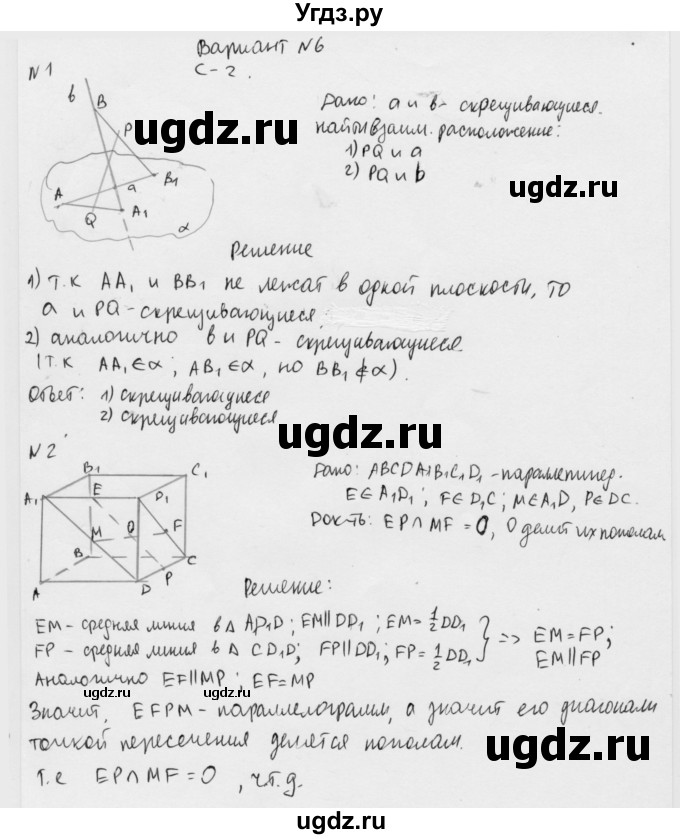 Угдз.ру
Вариант №6
С-2.
№1
b
B
P
A
a
B1
Q
A1
α
Дано: a и b - скрещивающиеся.
найти взаим. расположение:
1) PQ и a
2) PQ и b
ugdz.ru
ugdz.ru
Решение
1) т.к AA1 и BB1 не лежат в одной плоскости, то
a и PQ - скрещивающиеся.
2) аналогично b и PQ - скрещивающиеся
(т.к AA1 ∈ α; AB1 ∈ α, но BB1 ∉ α).
Ответ: 1) скрещивающиеся
2) скрещивающиеся
ugdz.ru
ugdz.ru
№2
B1
C1
A1
E
D1
M
O
F
B
C
A
D
P
Дано: ABCDA1B1C1D1 - параллепипед.
E∈A1D1; F∈D1C; M∈A1D, P∈DC.
Док-ть: EP∩MF = O, O делит их пополам
ugdz.ru
ugdz.ru
Решение:
EM - средняя линия в Δ A1D1D; EM∥DD1; EM=1/2DD1 } => EM=FP;
FP - средняя линия в Δ CD1D; FP∥DD1; FP=1/2DD1 EM∥FP
Аналогично EF∥MP; EF=MP
ugdz.ru
ugdz.ru
Значит, EFPM - параллелограмм, а значит его диагонали
точкой пересечения делятся пополам.
Т.е EP∩MF=O, ч.т.д.
ugdz.ru
ugdz.ru
ugdz.ru